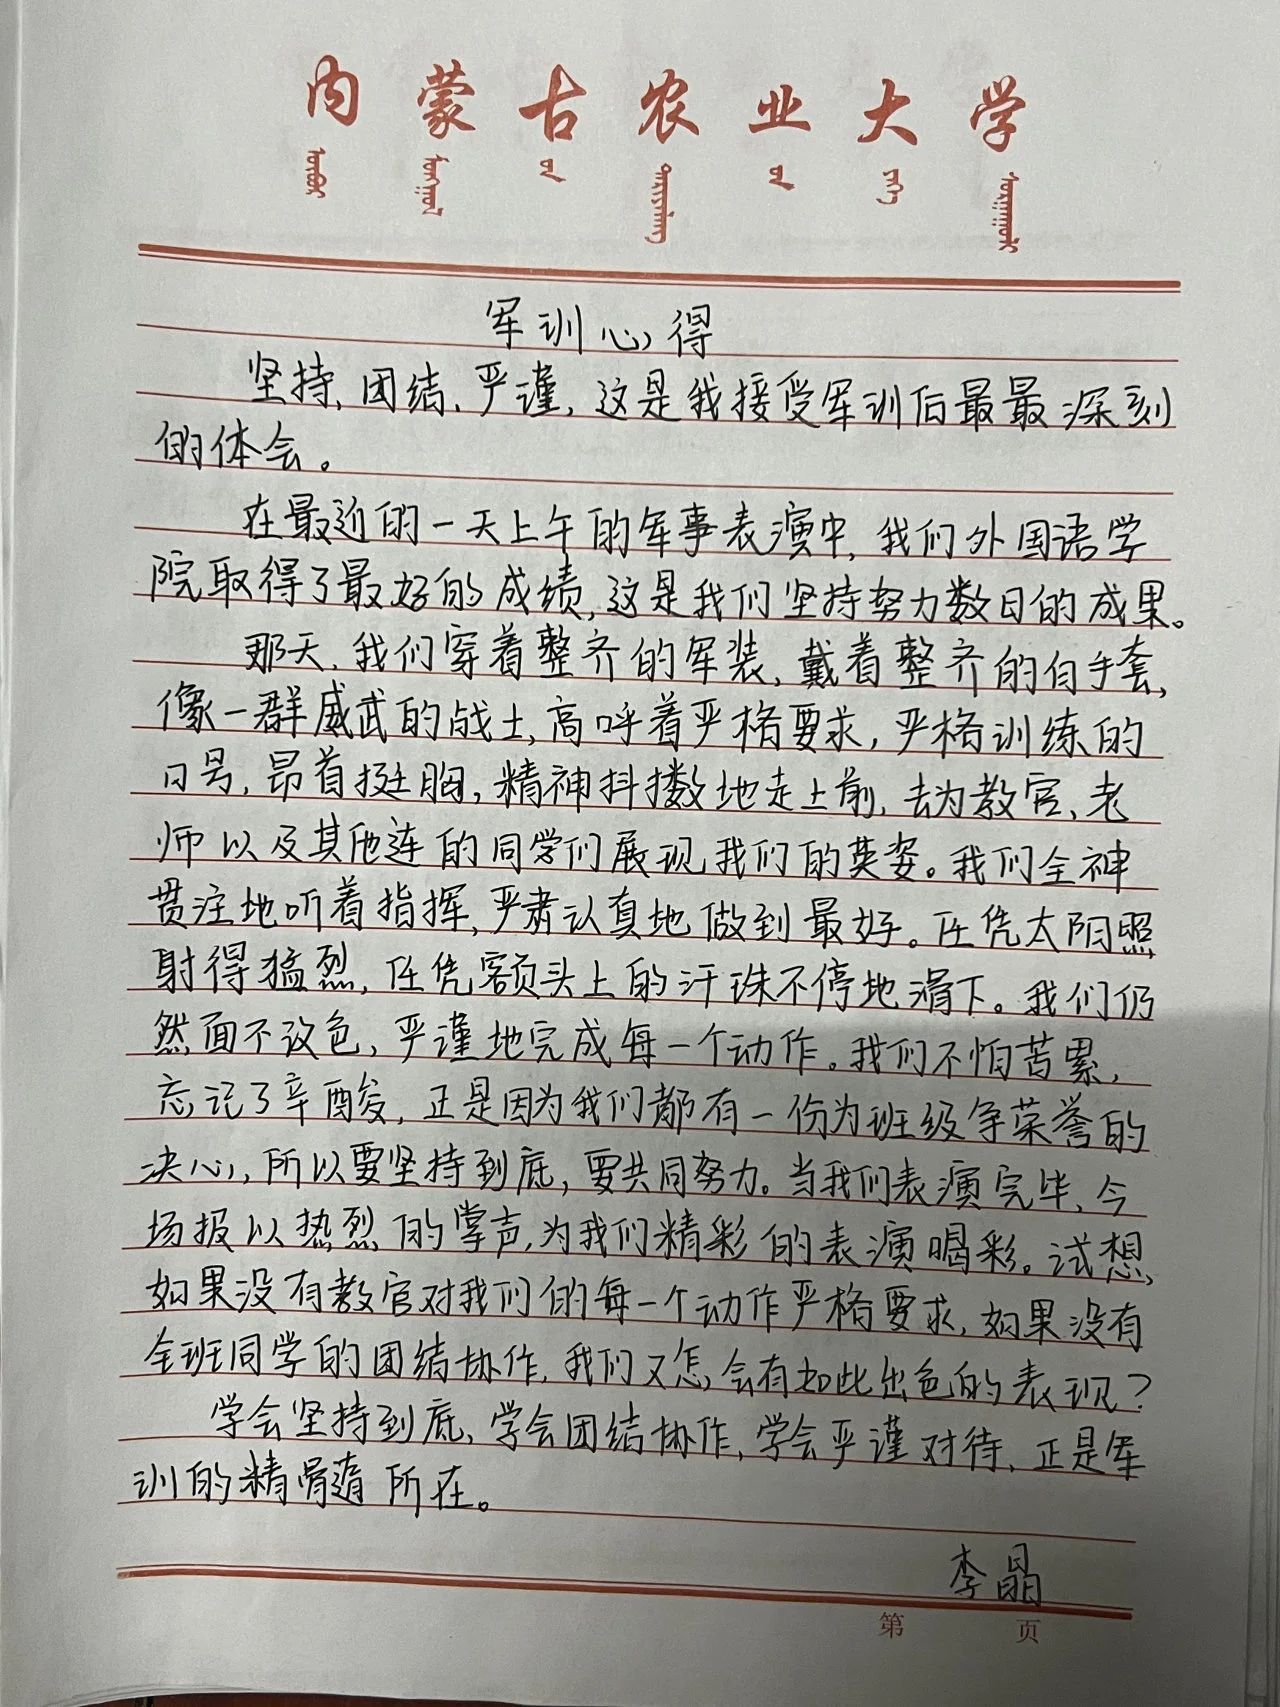 内蒙古农业大学
军训心得
坚持、团结、严谨,这是我接受军训后最最深刻
的体会。
在最近的一天上午的军事表演中,我们外国语学
院取得了最好的成绩,这是我们坚持努力数日的成果。
那天,我们穿着整齐的军装,戴着整齐的白手套,
像一群威武的战士,高呼着严格要求,严格训练的
口号,昂首挺胸,精神抖擞地走上前,去为教官、老
师以及其他连的同学们展现我们的英姿。我们全神
贯注地听着指挥,严肃认真地做到最好。任凭太阳照
射得猛烈,任凭额头上的汗珠不停地滑下。我们仍
然面不改色,严谨地完成每一个动作。我们不怕苦累,
忘记了辛酸,正是因为我们都有一份为班级争荣誉的
决心,所以要坚持到底,要共同努力。当我们表演完毕,今
场报以热烈的掌声,为我们精彩的表演喝彩。试想,
如果没有教官对我们的每一个动作严格要求,如果没有
全班同学的团结协作,我们又怎会有如此出色的表现?
学会坚持到底,学会团结协作,学会严谨对待,正是军
训的精髓所在。
李晶
第 页